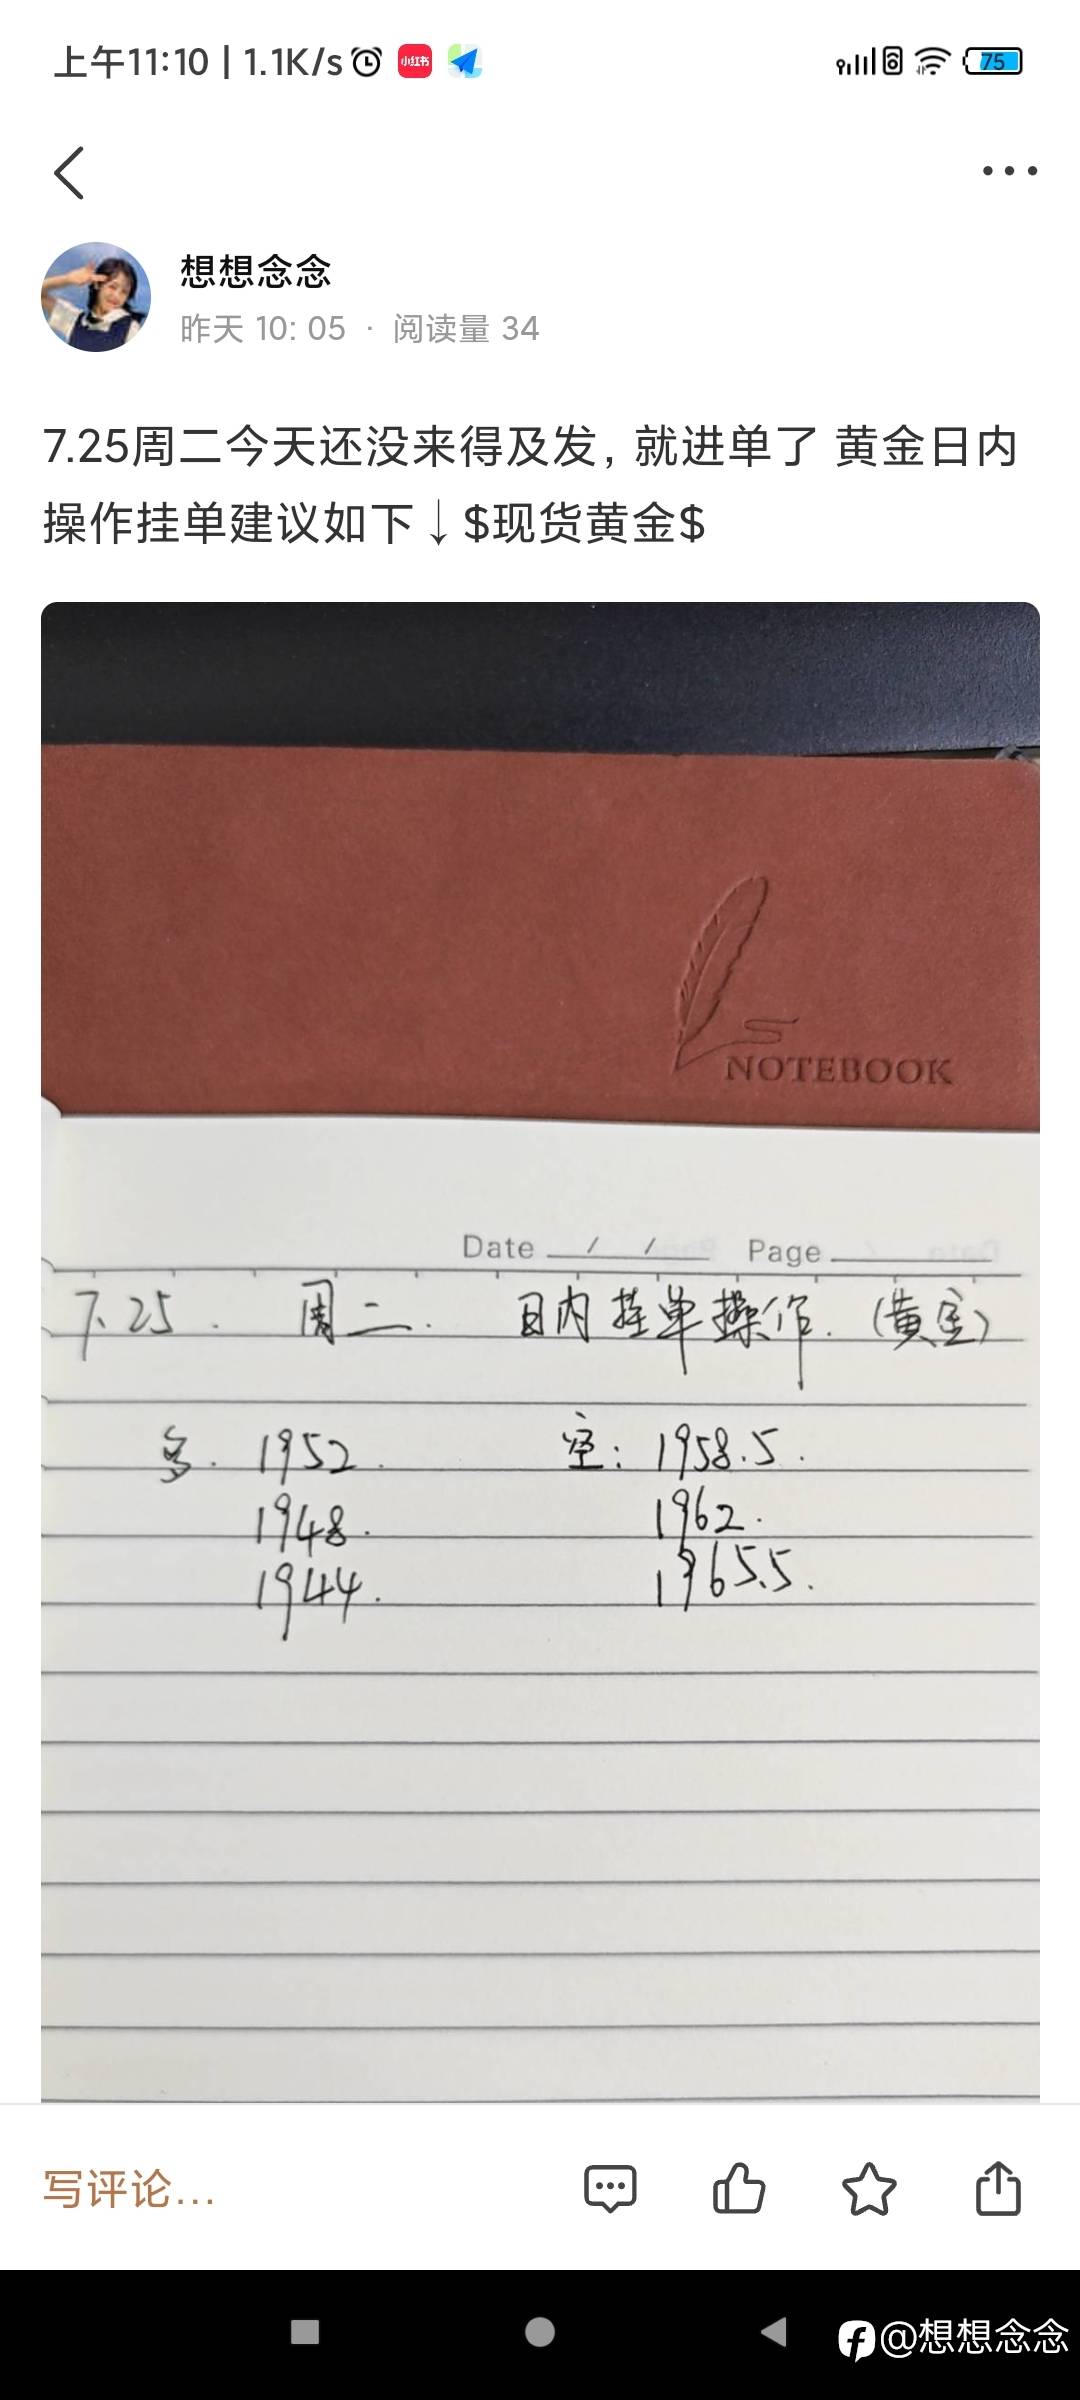 上午11:10 | 1.1K/s
小红书
75
想想念念
昨天 10: 05 · 阅读量 34
7.25周二今天还没来得及发, 就进单了 黄金日内
操作挂单建议如下↓$现货黄金$
NOTEBOOK
Date / / Page
7.25. 周二. 日内挂单操作. (黄金)
多. 1952. 空: 1958.5.
1948. 1962.
1944. 1965.5.
写评论...
@想想念念